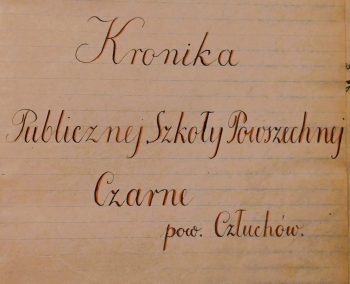 Kronika
Publicznej Szkoły Powszechnej
Czarne
pow. Człuchów.